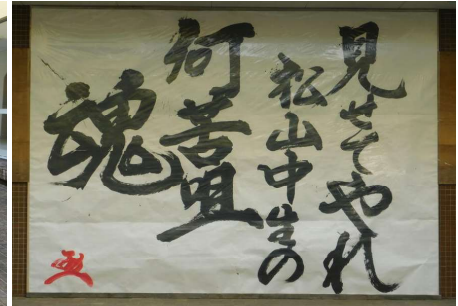 見せてやれ
松山中生の
何苦咀
魂